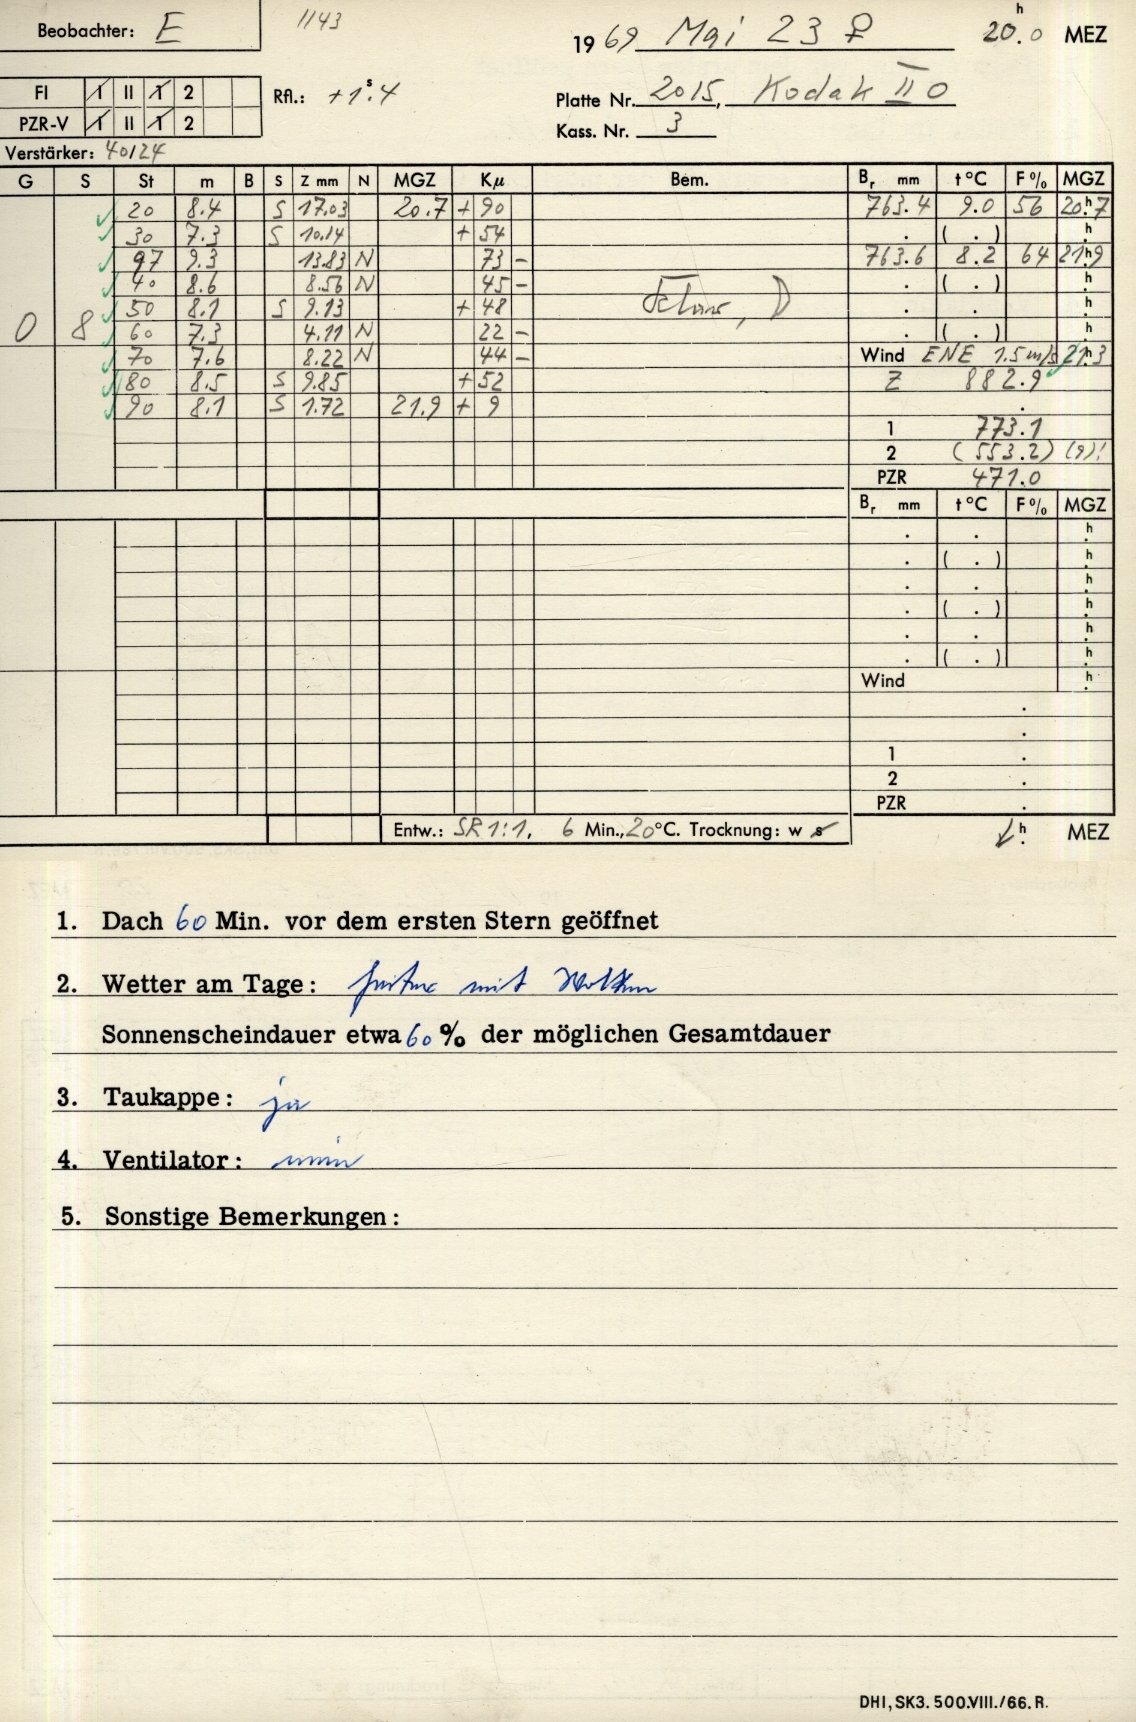 Beobachter: E
1143
1969 Mai 23 ♀ 20.0 h MEZ
FI 1 II 1 2
PZR-V 1 II 1 2
Rfl.: +1.s4
Platte Nr. 2015, Kodak II O
Kass. Nr. 3
Verstärker: 40/24
G S St m B S Z mm N MGZ Kμ Bem. Br mm t°C F% MGZ
20 8.4 S 17.03 20.7 + 90 763.4 9.0 56 20.h7
30 7.3 S 10.14 + 54 . ( . ) h
97 9.3 13.83 N 73 – 763.6 8.2 64 21.h9
40 8.6 8.56 N 45 – . ( . ) h
50 8.1 S 9.13 + 48 . . h
0 8 60 7.3 4.11 N 22 – . ( . ) h
70 7.6 8.22 N 44 – Wind ENE 1.5 m/s 21.h3
80 8.5 S 9.85 + 52 Z 882.9
90 8.1 S 1.72 21.9 + 9 .
1 773.1
2 (553.2) (9)!
PZR 471.0
Br mm t°C F% MGZ
. . h
. ( . ) h
. . h
. ( . ) h
. . h
. ( . ) h
Wind h
.
.
1 .
2 .
PZR .
Entw.: SR 1:1, 6 Min., 20°C. Trocknung: w s h MEZ
1. Dach 60 Min. vor dem ersten Stern geöffnet
2. Wetter am Tage: heiter mit Wolken
Sonnenscheindauer etwa 60 % der möglichen Gesamtdauer
3. Taukappe: ja
4. Ventilator: nein
5. Sonstige Bemerkungen:
DHI, SK3. 500.VIII./66. R.